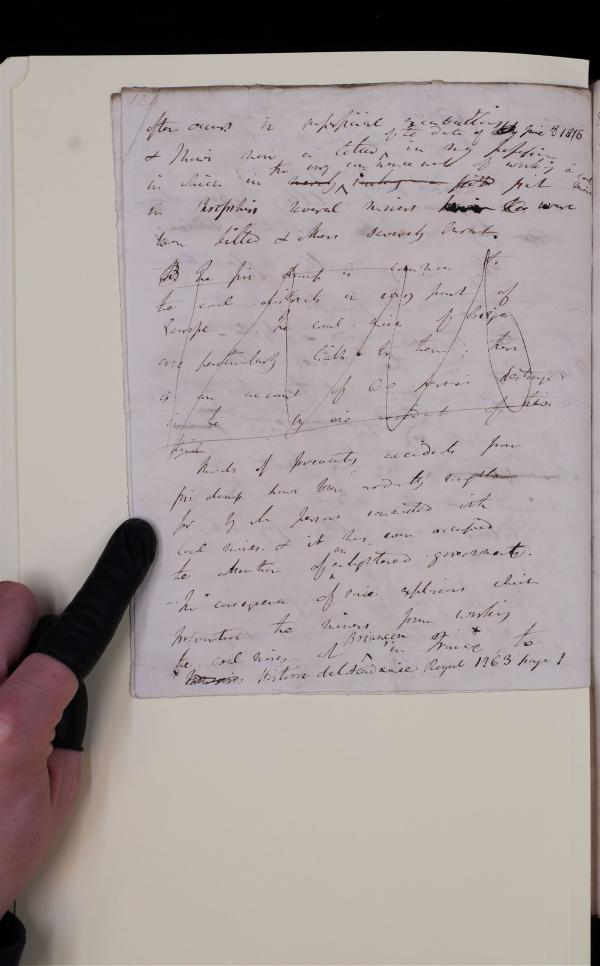 128
often occurs in superficial excavations
of the date of June 8 1816
& There is now a letter in my possession
the very commencement of working a coal mine
in which in pit
in Shropshire several miners were
been killed & others severely burnt.
The fire damp is common to
the coal districts in every part of
Europe. The coal mines of Liege
are particularly liable to them; there
is an account of 60 persons destroyed
in the by one of this
kind
Kinds of preventing accidents from
fire damp have been
for by the persons connected with
coal mines & it has even occupied
an
the attention of enlightened governments.
In consequence of some explosions which
prevented the miners from working
Briancon
the coal mines at in France * to
* Histoire de l'Academie Royal 1763 page 1